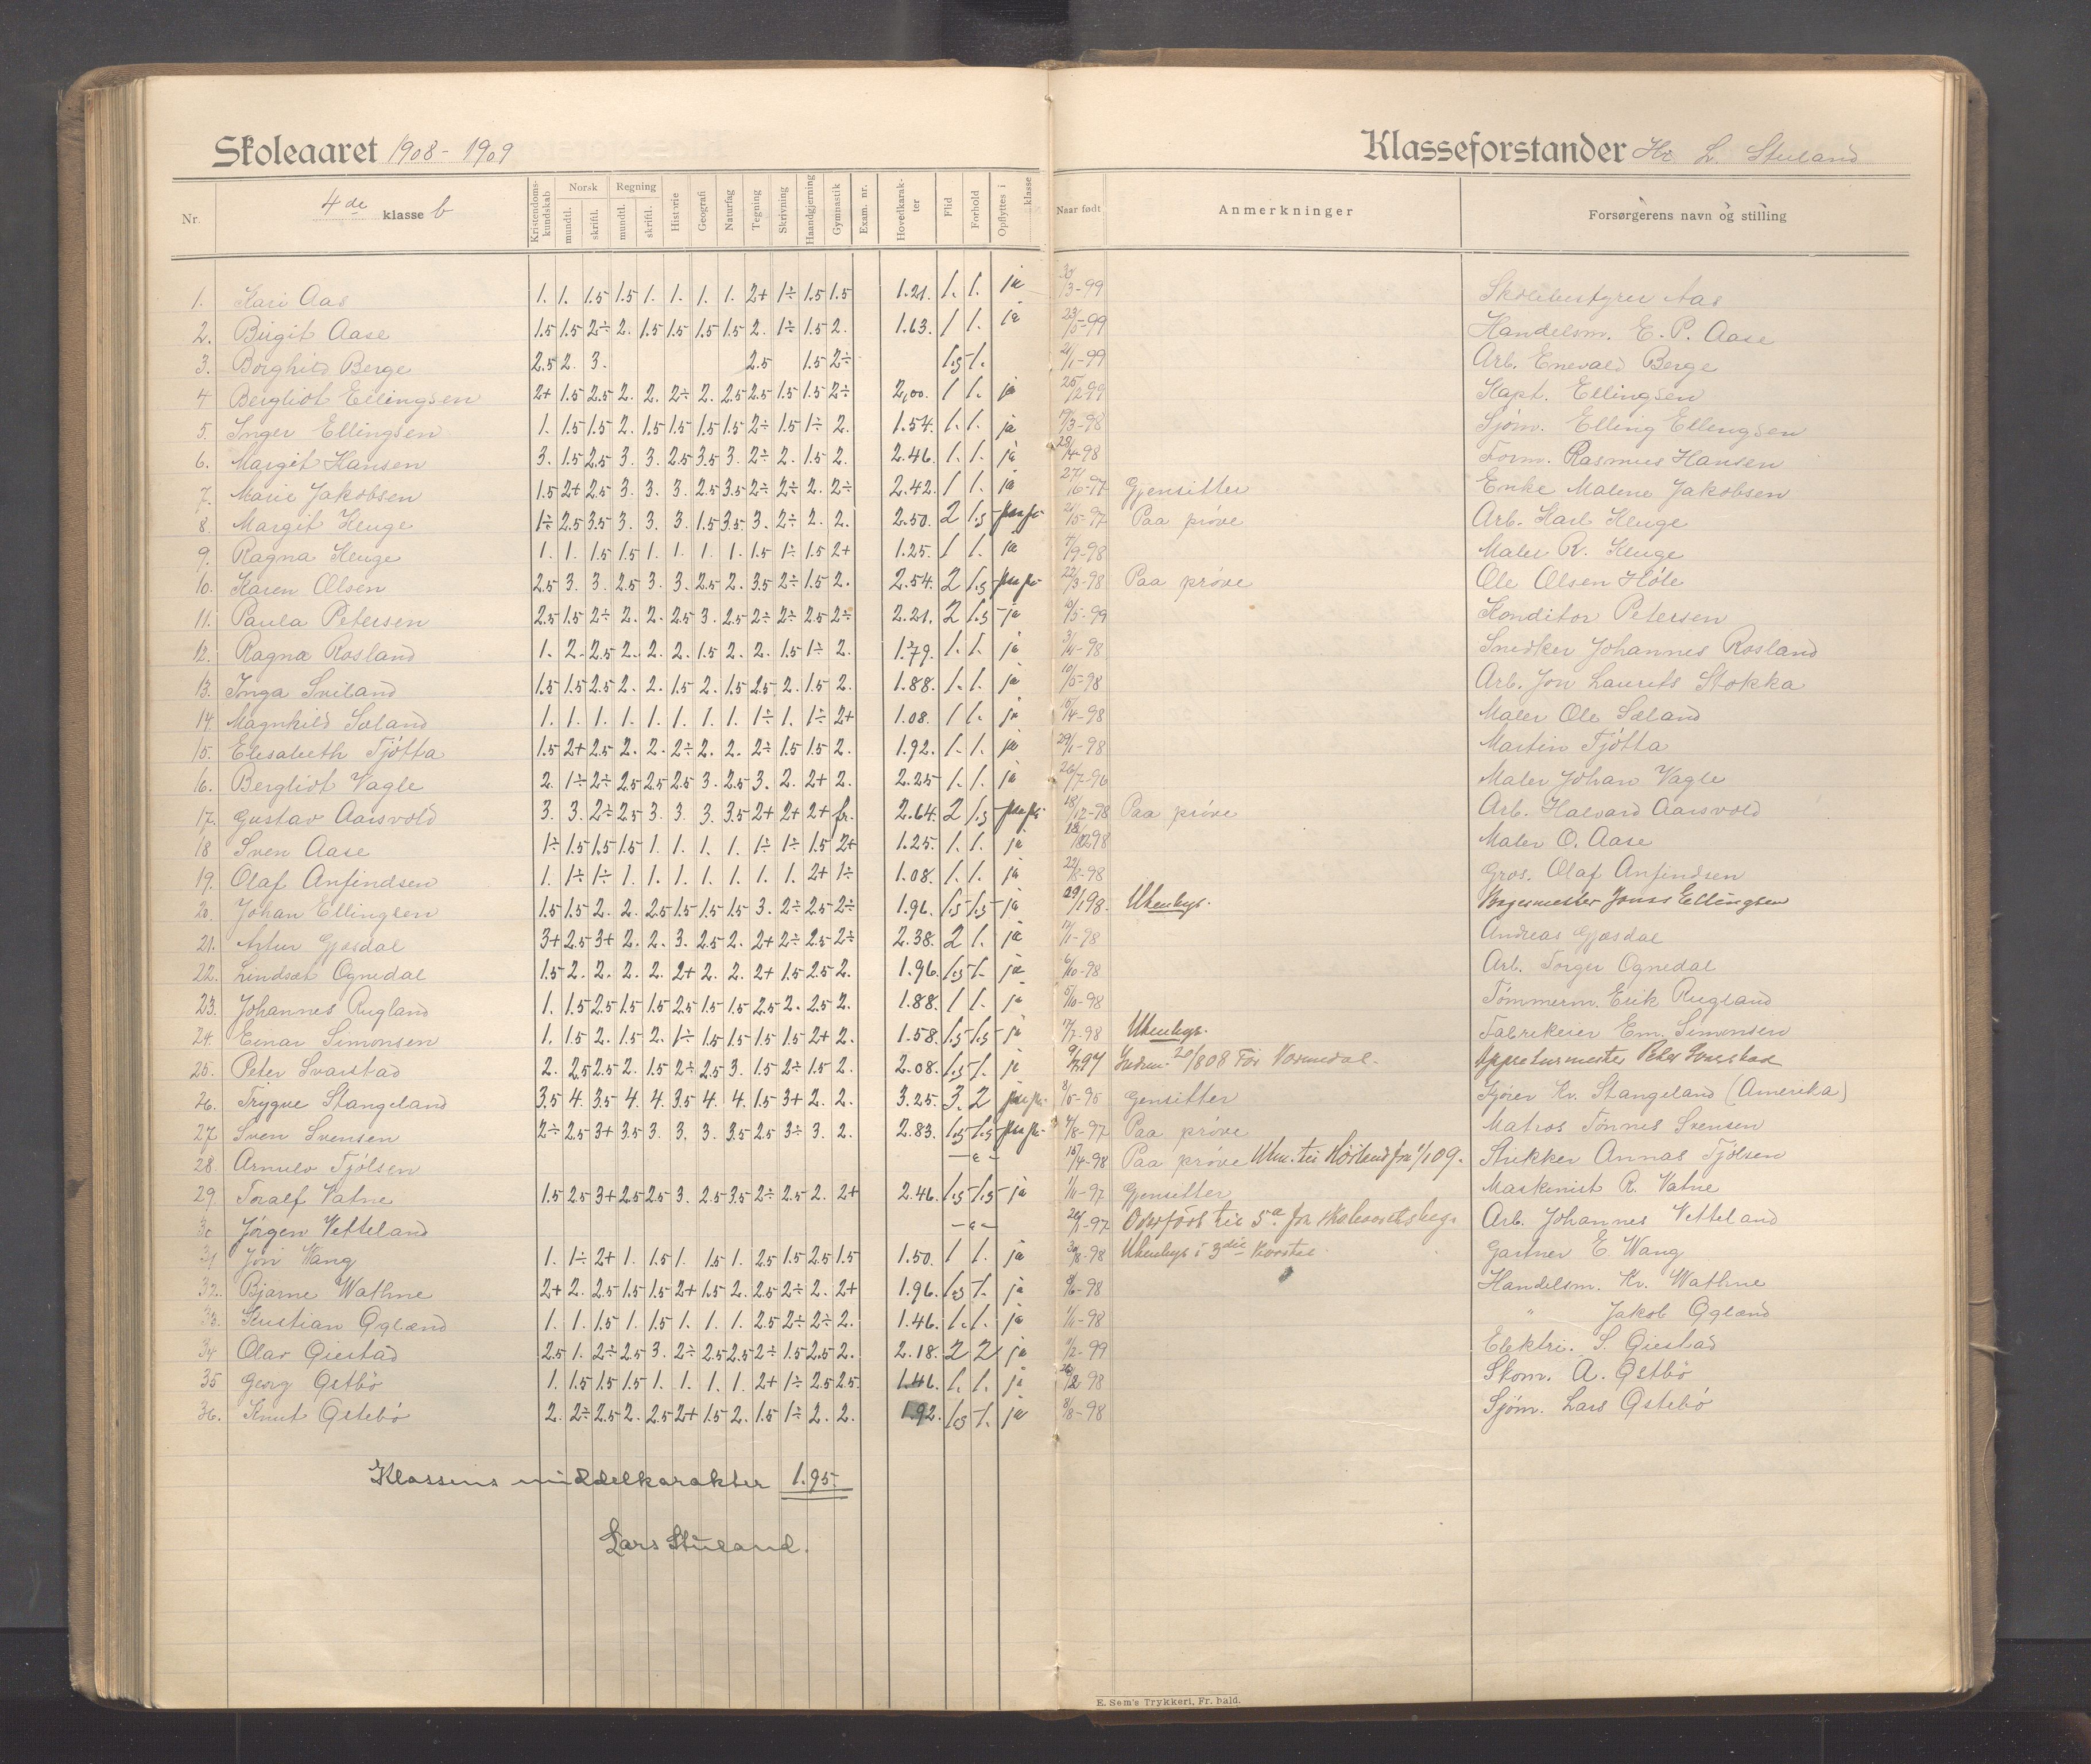 Skoleaaret 1908-1909
Klasseforstander Hr L. Stuland
Nr. 4de klasse b Kristendoms-kundskab Norsk mundtl. skriftl. Regning mundtl. skriftl. Historie Geografi Naturfag Tegning Skrivning Haandgjerning Gymnastik Exam. nr. Hovedkarak-ter Flid Forhold Opflyttes i klasse Naar født Anmerkninger Forsørgerens navn og stilling
1. Kari Aas 1. 1. 1.5 1.5 1. 1. 1. 1. 2+ 1÷ 1.5 1.5 1.21. 1. 1. ja /3-99 Skolebestyrer Aas
2. Birgit Aase 1.5 1.5 2÷ 2. 1.5 1.5 1.5 1.5 2. 1÷ 1.5 2. 1.63. 1 1. ja 23/5-99 Handelsm. E. P. Aase
3. Borghild Berge 2.5 2. 3. 2.5 1.5 2÷ 1.5 1. 21/1-99 Arb. Enevald Berge
4 Bergliot Ellingsen 2+ 1.5 2.5 2. 2. 2÷ 2. 2.5 2.5 1.5 1.5 2÷ 2,00. 1 1. ja 25/2 99 Kapt. Ellingsen
5. Inger Ellingsen 1. 1.5 1.5 2. 1.5 1.5 1.5 1.5 2÷ 1.5 1÷ 2. 1.54. 1. 1. ja 17/3-98 Sjøm. Elling Ellingsen
6. Margit Hansen 3. 1.5 2.5 3. 3. 2.5 3.5 3. 2÷ 2. 1.5 2. 2.46. 1. 1. ja 28/4-98 Form. Rasmus Hansen
7. Marie Jakobsen 1.5 2+ 2.5 3. 3. 3. 2.5 3.5 2÷ 2÷ 2. 2÷ 2.42. 1 1. ja 27/6-97 Gjensitter Enke Malene Jakobsen
8. Margit Kluge 1÷ 2.5 3.5 3. 3. 3. 1.5 3.5 3. 2÷ 2. 2. 2.50. 2 1.5 21/5-97 Paa prøve Arb. Karl Kluge
9. Ragna Kluge 1. 1. 1.5 1.5 1. 1. 1. 1. 1.5 1÷ 1.5 2+ 1.25. 1 1. ja 4/9-98 Maler R. Kluge
10. Karen Olsen 2.5 3. 3. 2.5 3. 3. 2.5 2. 3.5 2÷ 1.5 2. 2.54. 2 1.5 22/3-98 Paa prøve Ole Olsen Høle
11. Paula Petersen 2.5 1.5 2÷ 2. 2. 2.5 3. 2.5 2÷ 2÷ 2.5 2÷ 2.21. 2 1.5 ja 10/5-99 Konditor Petersen
12. Ragna Rosland 1. 2. 2.5 2. 2. 2. 1.5 2. 2. 1.5 1÷ 2. 1.79. 1. 1. ja 3/4-98 Snedker Johannes Rosland
13. Inga Sviland 1.5 1.5 2.5 2. 2. 1.5 2. 1.5 2.5 2. 1.5 2. 1.88. 1. 1. ja 10/5-98 Arb. Jon Laurits Stokka
14 Magnhild Sæland 1. 1. 1. 1. 1. 1. 1. 1. 1÷ 1. 1÷ 2+ 1.08. 1 1. ja 10/4-98 Maler Ole Sæland
15. Elisabeth Tjøtta 1.5 2+ 2.5 2. 2. 2÷ 2. 2. 2÷ 1.5 1.5 2. 1.92. 1. 1. ja 29/1-98 Martin Tjøtta
16. Bergliot Vagle 2. 1÷ 2÷ 2.5 2.5 2.5 3. 2.5 3. 2. 2+ 2. 2.25 1. 1. ja 26/7-96 Maler Johan Vagle
17. Gustav Aarsvold 3. 3. 2÷ 2.5 3. 3. 3. 3.5 2+ 2+ 2+ fr. 2.64. 2 1.5 18/12-98 Paa prøve Arb. Halvard Aarsvold
18 Sven Aase 1÷ 1.5 1.5 1.5 1. 1. 1. 1. 1÷ 1÷ 1.5 2+ 1.25. 1. 1. ja Maler O. Aase
19. Olaf Anfindsen 1. 1÷ 1÷ 1. 1. 1. 1. 1. 1. 1. 2+ 1÷ 1.08. 1. 1. ja 22/8-98 Gros. Olaf Anfindsen
20. Johan Ellingsen 1.5 1.5 2. 2. 2.5 1.5 1.5 1.5 3. 2÷ 2.5 2÷ 1.96. 1.5 1.5 ja 29/1 98. Ukenbys. Bagermester Jonas Ellingsen
21. Artur Gjæsdal 3+ 2.5 3+ 2. 2. 3. 2.5 2. 2+ 2÷ 2.5 2÷ 2.38. 2 1. ja 17/1-98 Andreas Gjæsdal
22. Lindsæt Ognedal 1.5 2. 2. 2. 2. 2+ 2. 2. 2+ 1.5 2.5 2. 1.96. 1.5 1. ja 6/10-98 Arb. Torger Ognedal
23. Johannes Rugland 1. 1.5 2.5 1.5 1.5 2.5 1.5 1.5 2.5 2. 2.5 2. 1.88. 1 1. ja 5/10-98 Tømmerm. Erik Rugland
24. Einar Simonsen 1. 1.5 2. 1.5 2. 1÷ 1.5 1.5 1.5 1.5 2+ 2. 1.58. 1.5 1.5 ja 17/7-98 Ukenbys. Fabrikeier Em. Simonsen
25. Peter Svarstad 2. 2.5 2.5 2. 1.5 2÷ 2.5 3. 1.5 2÷ 1.5 2. 2.08. 1.5 1. ja Indm. 20/8 08 Før Vormedal. Appreturmester Peder Svarstad
26. Trygve Stangeland 3.5 4. 3.5 4. 4. 3.5 4. 4. 1.5 3+ 2. 2. 3.25. 3. 2 8/5-95 Gensitter Kv. Stangeland (Amerika)
27 Sven Svensen 2÷ 2.5 3+ 3.5 3. 3. 3. 3.5 2.5 3÷ 3. 2. 2.83. 1.5 1.5 4/8-97 Paa prøve Matros Tønnes Svensen
28. Arnulv Tjølsen - " - 15/4-98 Paa prøve Utm. til fra 1/1 09. Annas Tjølsen
29. Toralf Vatne 1.5 2.5 3+ 2.5 2.5 3. 2.5 3.5 2÷ 2.5 2. 2+ 2.46. 1.5 1.5 ja 1/11-97 Gjensitter Maskinist R. Vatne
30 Jørgen Vetteland - " - Overført til 5a fra skoleaarets beg. Arb. Johannes Vetteland
31 Jon Wang 1. 1÷ 2+ 1. 1.5 1. 1.5 1. 2.5 1.5 2.5 1.5 1.50. 1 1. ja 30/8-98 Ukenbys i 3die kvartal. Gartner E. Wang
32. Bjarne Wathne 2+ 2. 2.5 1.5 1.5 2+ 1.5 2. 2.5 2÷ 2. 2+ 1.96. 1.5 1. ja 9/6-98 Handelsm. Kr. Wathne
33. Kristian Øglænd 1. 1. 1.5 1. 1.5 1. 1. 1. 2.5 2÷ 2÷ 2. 1.46. 1. 1. ja 1/11-98 " Jakob Øglænd
34 Olav Øiestad 2.5 1. 2÷ 2.5 3. 2÷ 2.5 2.5 2÷ 1.5 2.5 2. 2.18. 2 2 ja 11/2-99 Elektri. S. Øiestad
35 Georg Østbø 1. 1.5 1.5 1.5 1. 1. 1. 1. 2+ 1÷ 2.5 2.5. 1.46. 1. 1. ja Skom. A. Østbø
36. Knut Østebø 2. 2÷ 2.5 2. 2.5 2+ 1.5 2. 1.5 1÷ 2. 2. 1.92. 1.5 1. ja 8/8-98 Sjøm. Lars Østebø
Klassens middelkarakter 1.95.
Lars Stuland.
E. Sem's Trykkeri, Fr. hald.